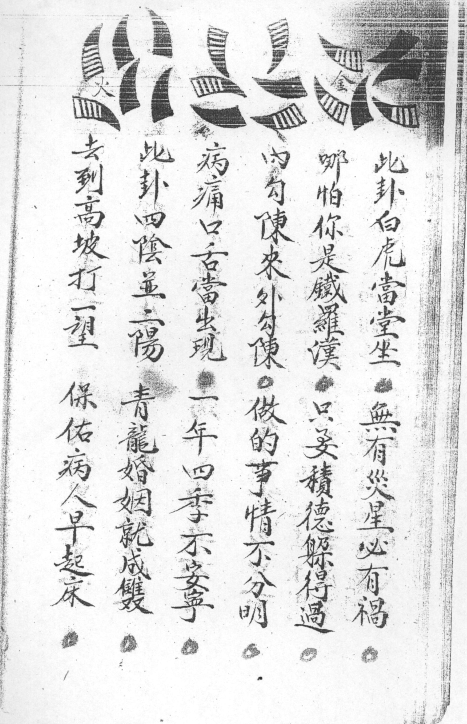 金
火
此卦白虎當堂坐 無有災星必有禍
哪怕你是鐵羅漢 只要積德躲得過
內勾陳來外勾陳 做的事情不分明
病痛口舌當出現 一年四季不安寧
此卦四陰並二陽 青龍婚姻就成雙
去到高坡打一望 保佑病人早起床